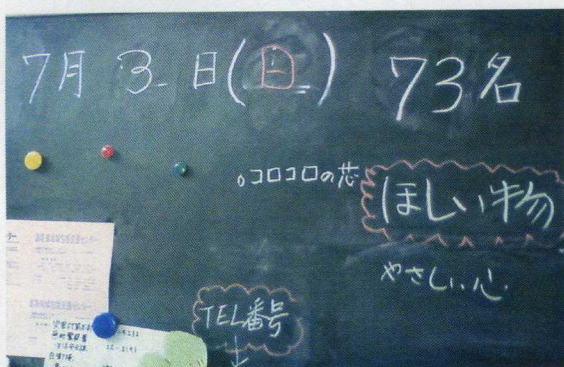 7月 3 日(日) 73名
。コロコロの芯
ほしい物
やさしい心
TEL番号
↓